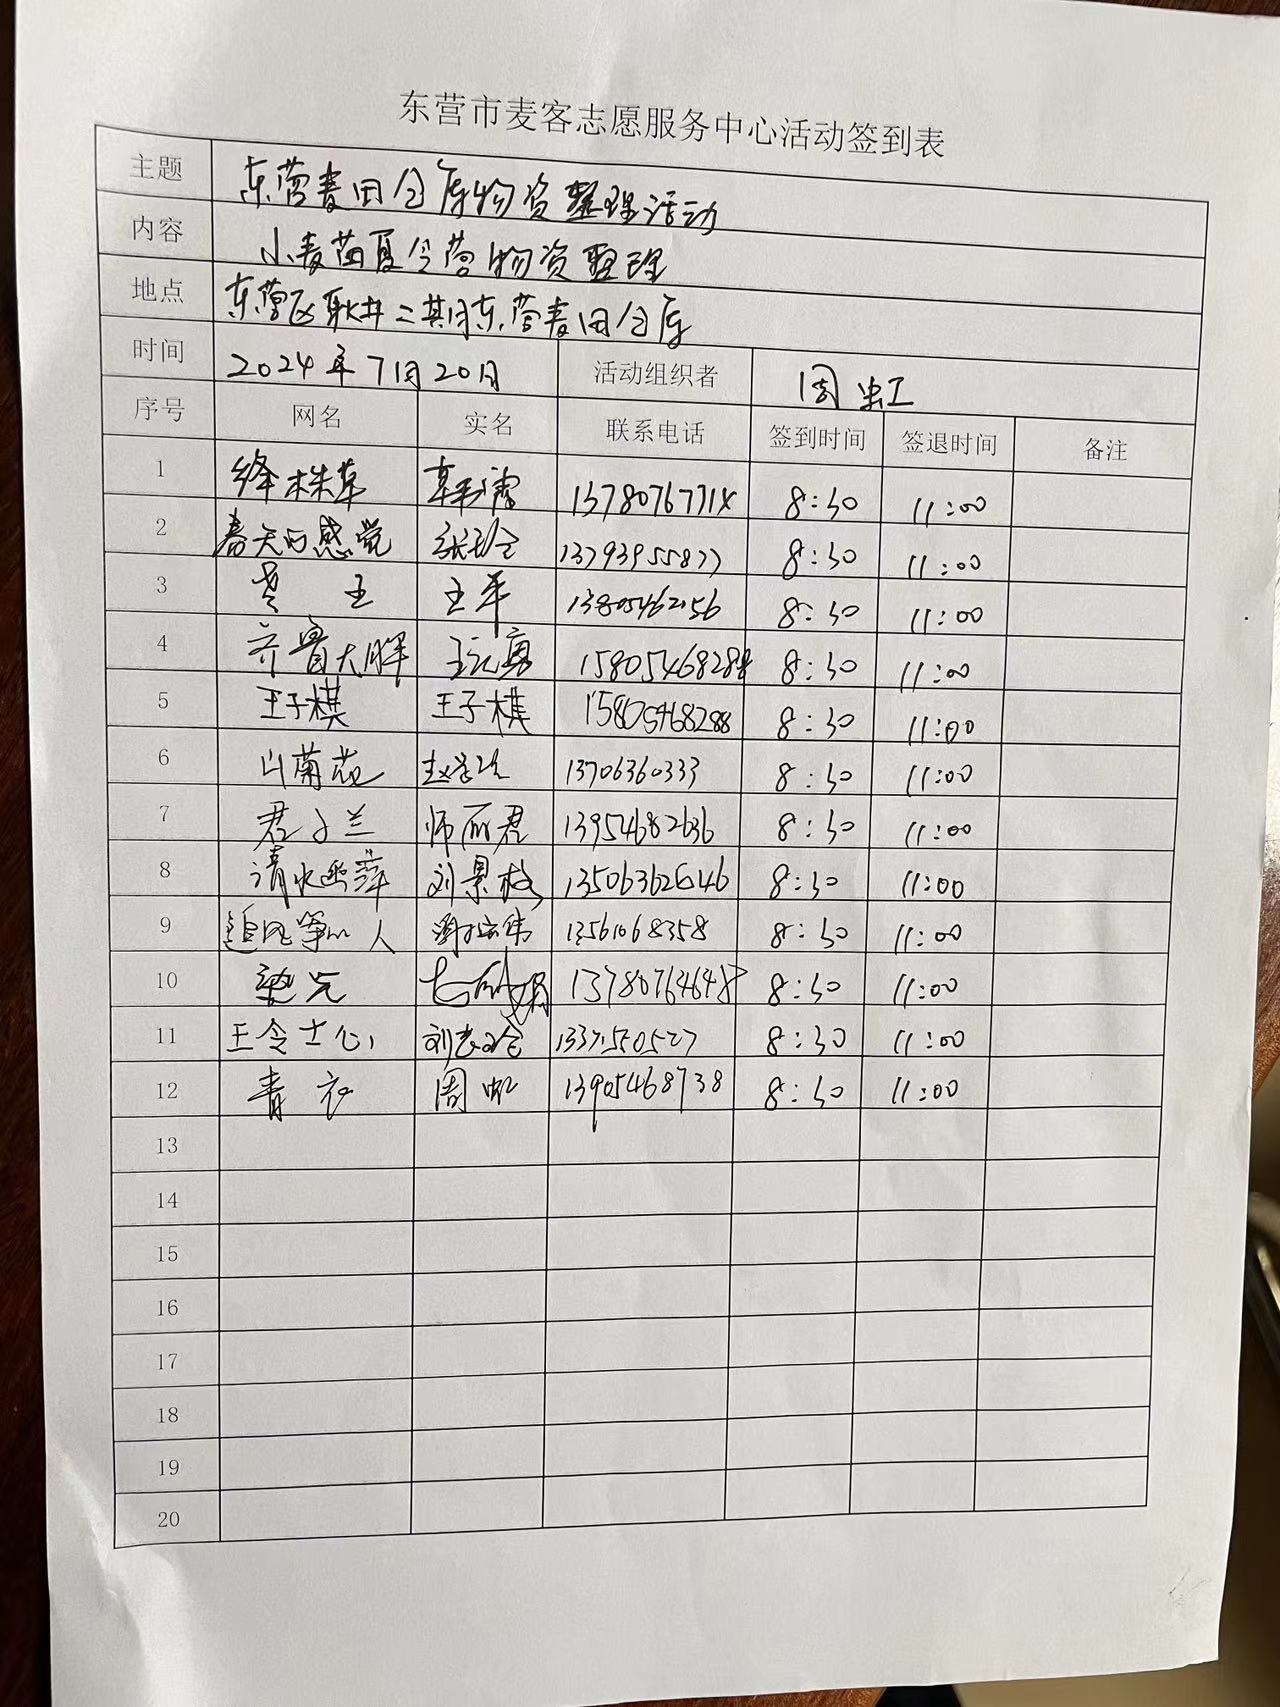 东营市麦客志愿服务中心活动签到表
主题 东营麦田仓库物资整理活动
内容 小麦苗夏令营物资整理
地点 东营区耿井二期东营麦田仓库
时间 2024年7月20日 活动组织者 周虹
序号 网名 实名 联系电话 签到时间 签退时间 备注
1 绛株草 8:30 11:00
2 春天的感觉 13793955877 8:30 11:00
3 王平 13805462156 8:30 11:00
4 齐鲁大胖 15805468288 8:30 11:00
5 王子棋 王子棋 15805468288 8:30 11:00
6 山菊花 13706360333 8:30 11:00
7 君子兰 师丽君 13954682636 8:30 11:00
8 清水幽萍 刘景枝 13506362646 8:30 11:00
9 追风筝的人 13561068358 8:30 11:00
10 13780764648 8:30 11:00
11 王令士心 刘志玲 13371550527 8:30 11:00
12 青衣 周虹 13905468738 8:30 11:00
13
14
15
16
17
18
19
20